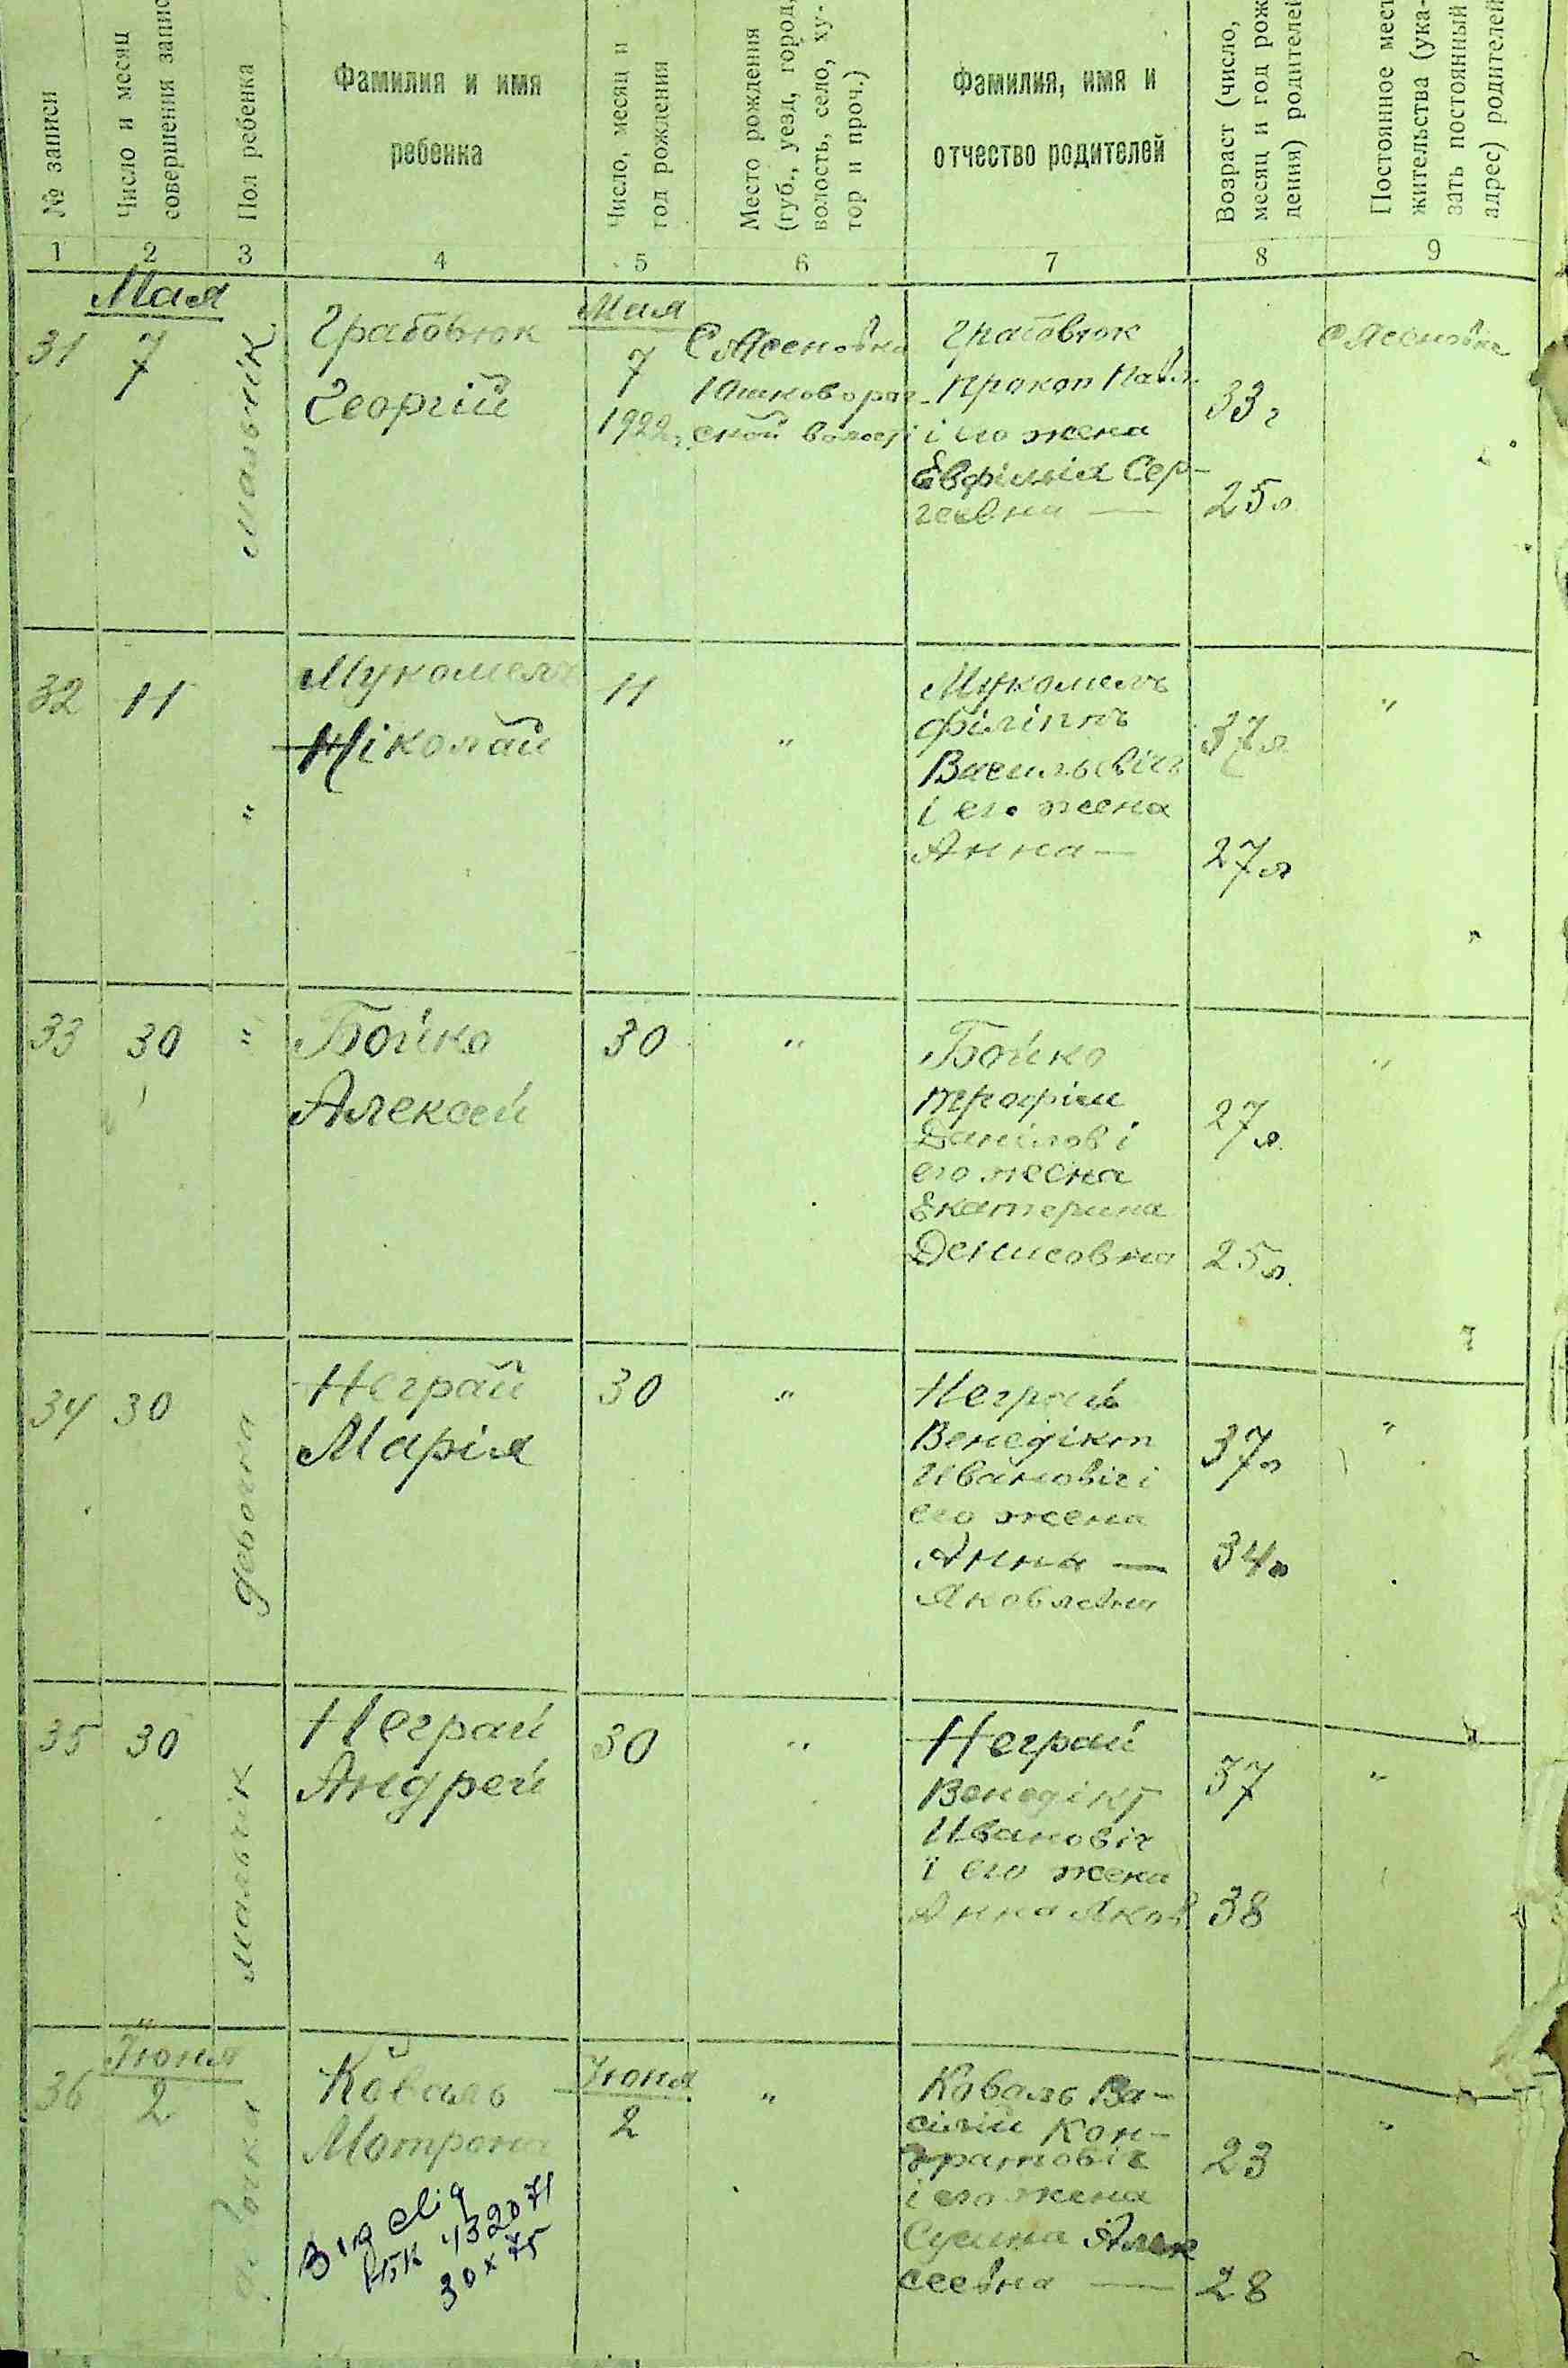 № записи
Число и месяц
совершения запис
Пол ребенка
Фамилия и имя
ребенка
Число, месяц и
год рождения
Место рождения
(губ., уезд, город,
волость, село, ху-
тор и проч.)
Фамилия, имя и
отчество родителей
Возраст (число,
месяц и год рож
дения) родителей
Постоянное мест
жительства (ука-
зать постоянный
адрес) родителей
1 2 3 4 5 6 7 8 9
Мая
31 7
мальчік
Грабовюк
Георгій
Мая
7
1922г.
С Ясеновка
Юшковорог-
ской волості
Грабовюк
Прокоп Павл.
і его жена
Евфімія Сер-
геевна —
33 г
25 л
С Ясеновка
32 11
"
Мукомель
Ніколай
11
"
Мукомелъ
Філіппъ
Васильевіч
і его жена
Анна —
37 л
27 л
"
33 30 "
Бойко
Алексей
30
"
Бойко
Трофім
Данілов і
его жена
Екатерина
Денисовна
27 л.
25 л.
"
34 30
девочка
Неграй
Марія
30
"
Неграй
Венедікт
Ивановіч і
его жена
Анна —
Яковлевна
37 л
34 л
"
35 30
мальчік
Неграй
Андрей
30
"
Неграй
Венедікт
Ивановіч
і его жена
Анна Яков
37
38
"
Июня
36 2
девочка
Коваль
Мотрона
Июня
2
"
Коваль Ва-
сілій Кон-
дратовіч
і его жена
Сусана Алек
сеевна —
23
28
"
432071
30 х 75